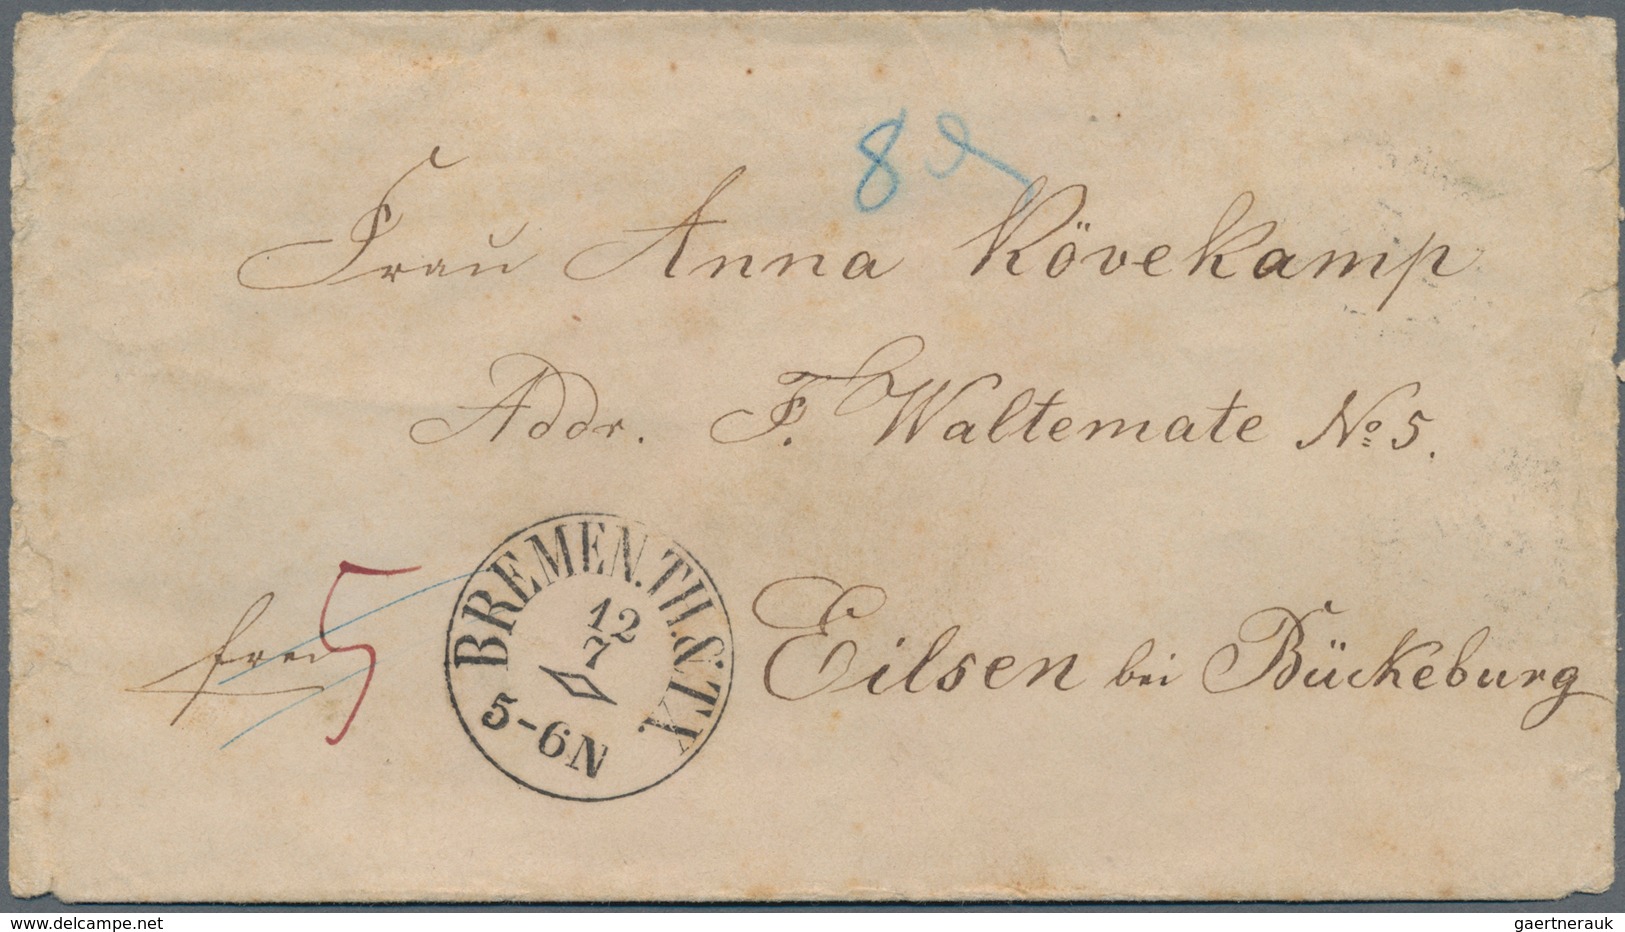 8
Frau Anna Kövekamp
Addr. F. Waltemate No 5.
frei 5
BREMEN.TH.&.TX
12
7
5-6N
Eilsen bei Bückeburg
delcampe.net
gaertnerauk